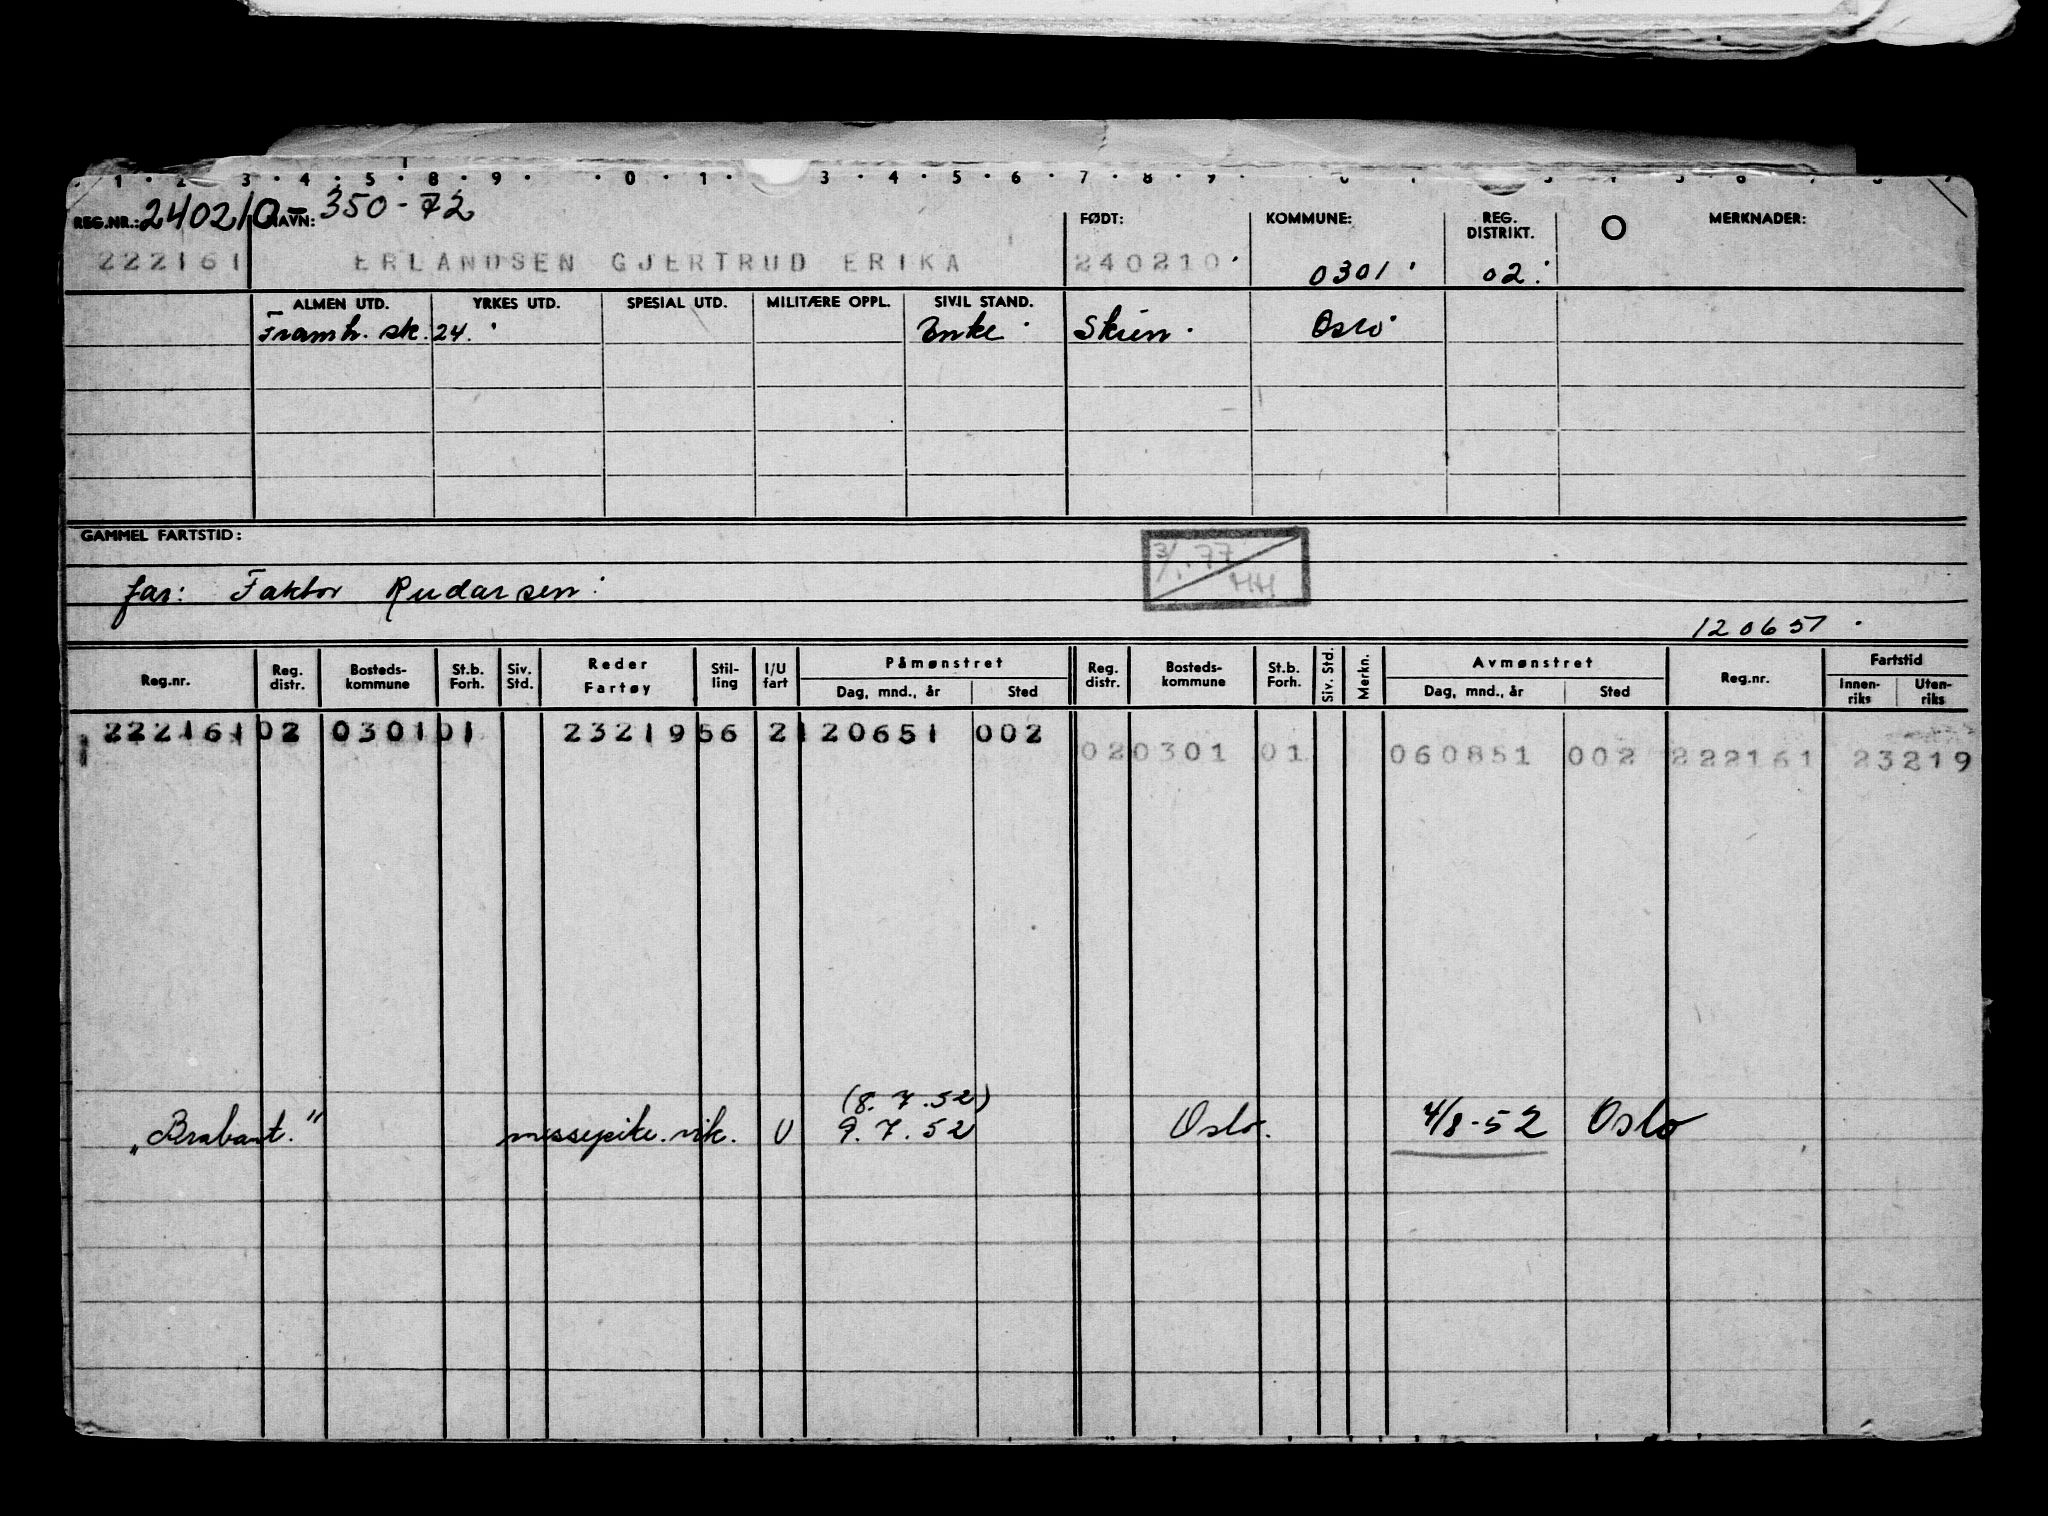 1 · 2 · 3 · 4 · 5 · 8 · 9 · · 0 · 1 · 3 · 4 · 5 · 6 · 7 · 8 · 9 ·
REG.NR.: 240210-350-72 NAVN: FØDT: KOMMUNE: REG. DISTRIKT. O MERKNADER:
222161 ERLANDSEN GJERTRUD ERIKA 240210 0301 02
ALMEN UTD. YRKES UTD. SPESIAL UTD. MILITÆRE OPPL. SIVIL STAND.
Framh. sk. 24. Enke Skien Oslo
GAMMEL FARTSTID:
3/1.77
HH
far: Faktor Rudarsen
120651
Reg.nr. Reg. distr. Bosteds-kommune St.b. Forh. Siv. Std. Reder Fartøy Stil-ling I/U fart Påmønstret Dag, mnd., år Sted Reg. distr. Bosteds-kommune St.b. Forh. Siv. Std. Merkn. Avmønstret Dag, mnd., år Sted Reg.nr. Fartstid Innen-riks Uten-riks
222161 02 0301 01 23219 56 2 120651 002
02 0301 01 060851 002 222161 23219
(8.7.52)
"Brabant." messepike vik. U 9.7.52 Oslo. 4/8-52 Oslo